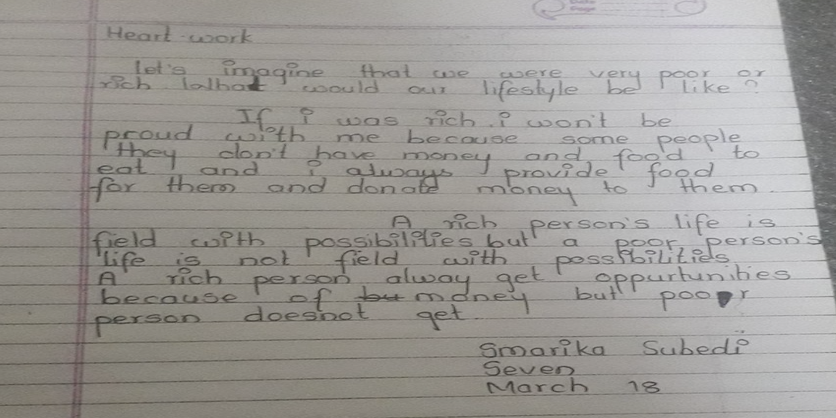 Heart work
let's imagine that we were very poor or
rich What would our lifestyle be like?
If i was rich. i won't be
proud with me because some people
they don't have money and food to
eat and i always provide food
for them and donate money to them.
A rich person's life is
field with possibilities but a poor person's
life is not field with possibilities
A rich person alway get oppurtunities
because of but money but poor
person doesnot get.
Smarika Subedi
Seven
March 18